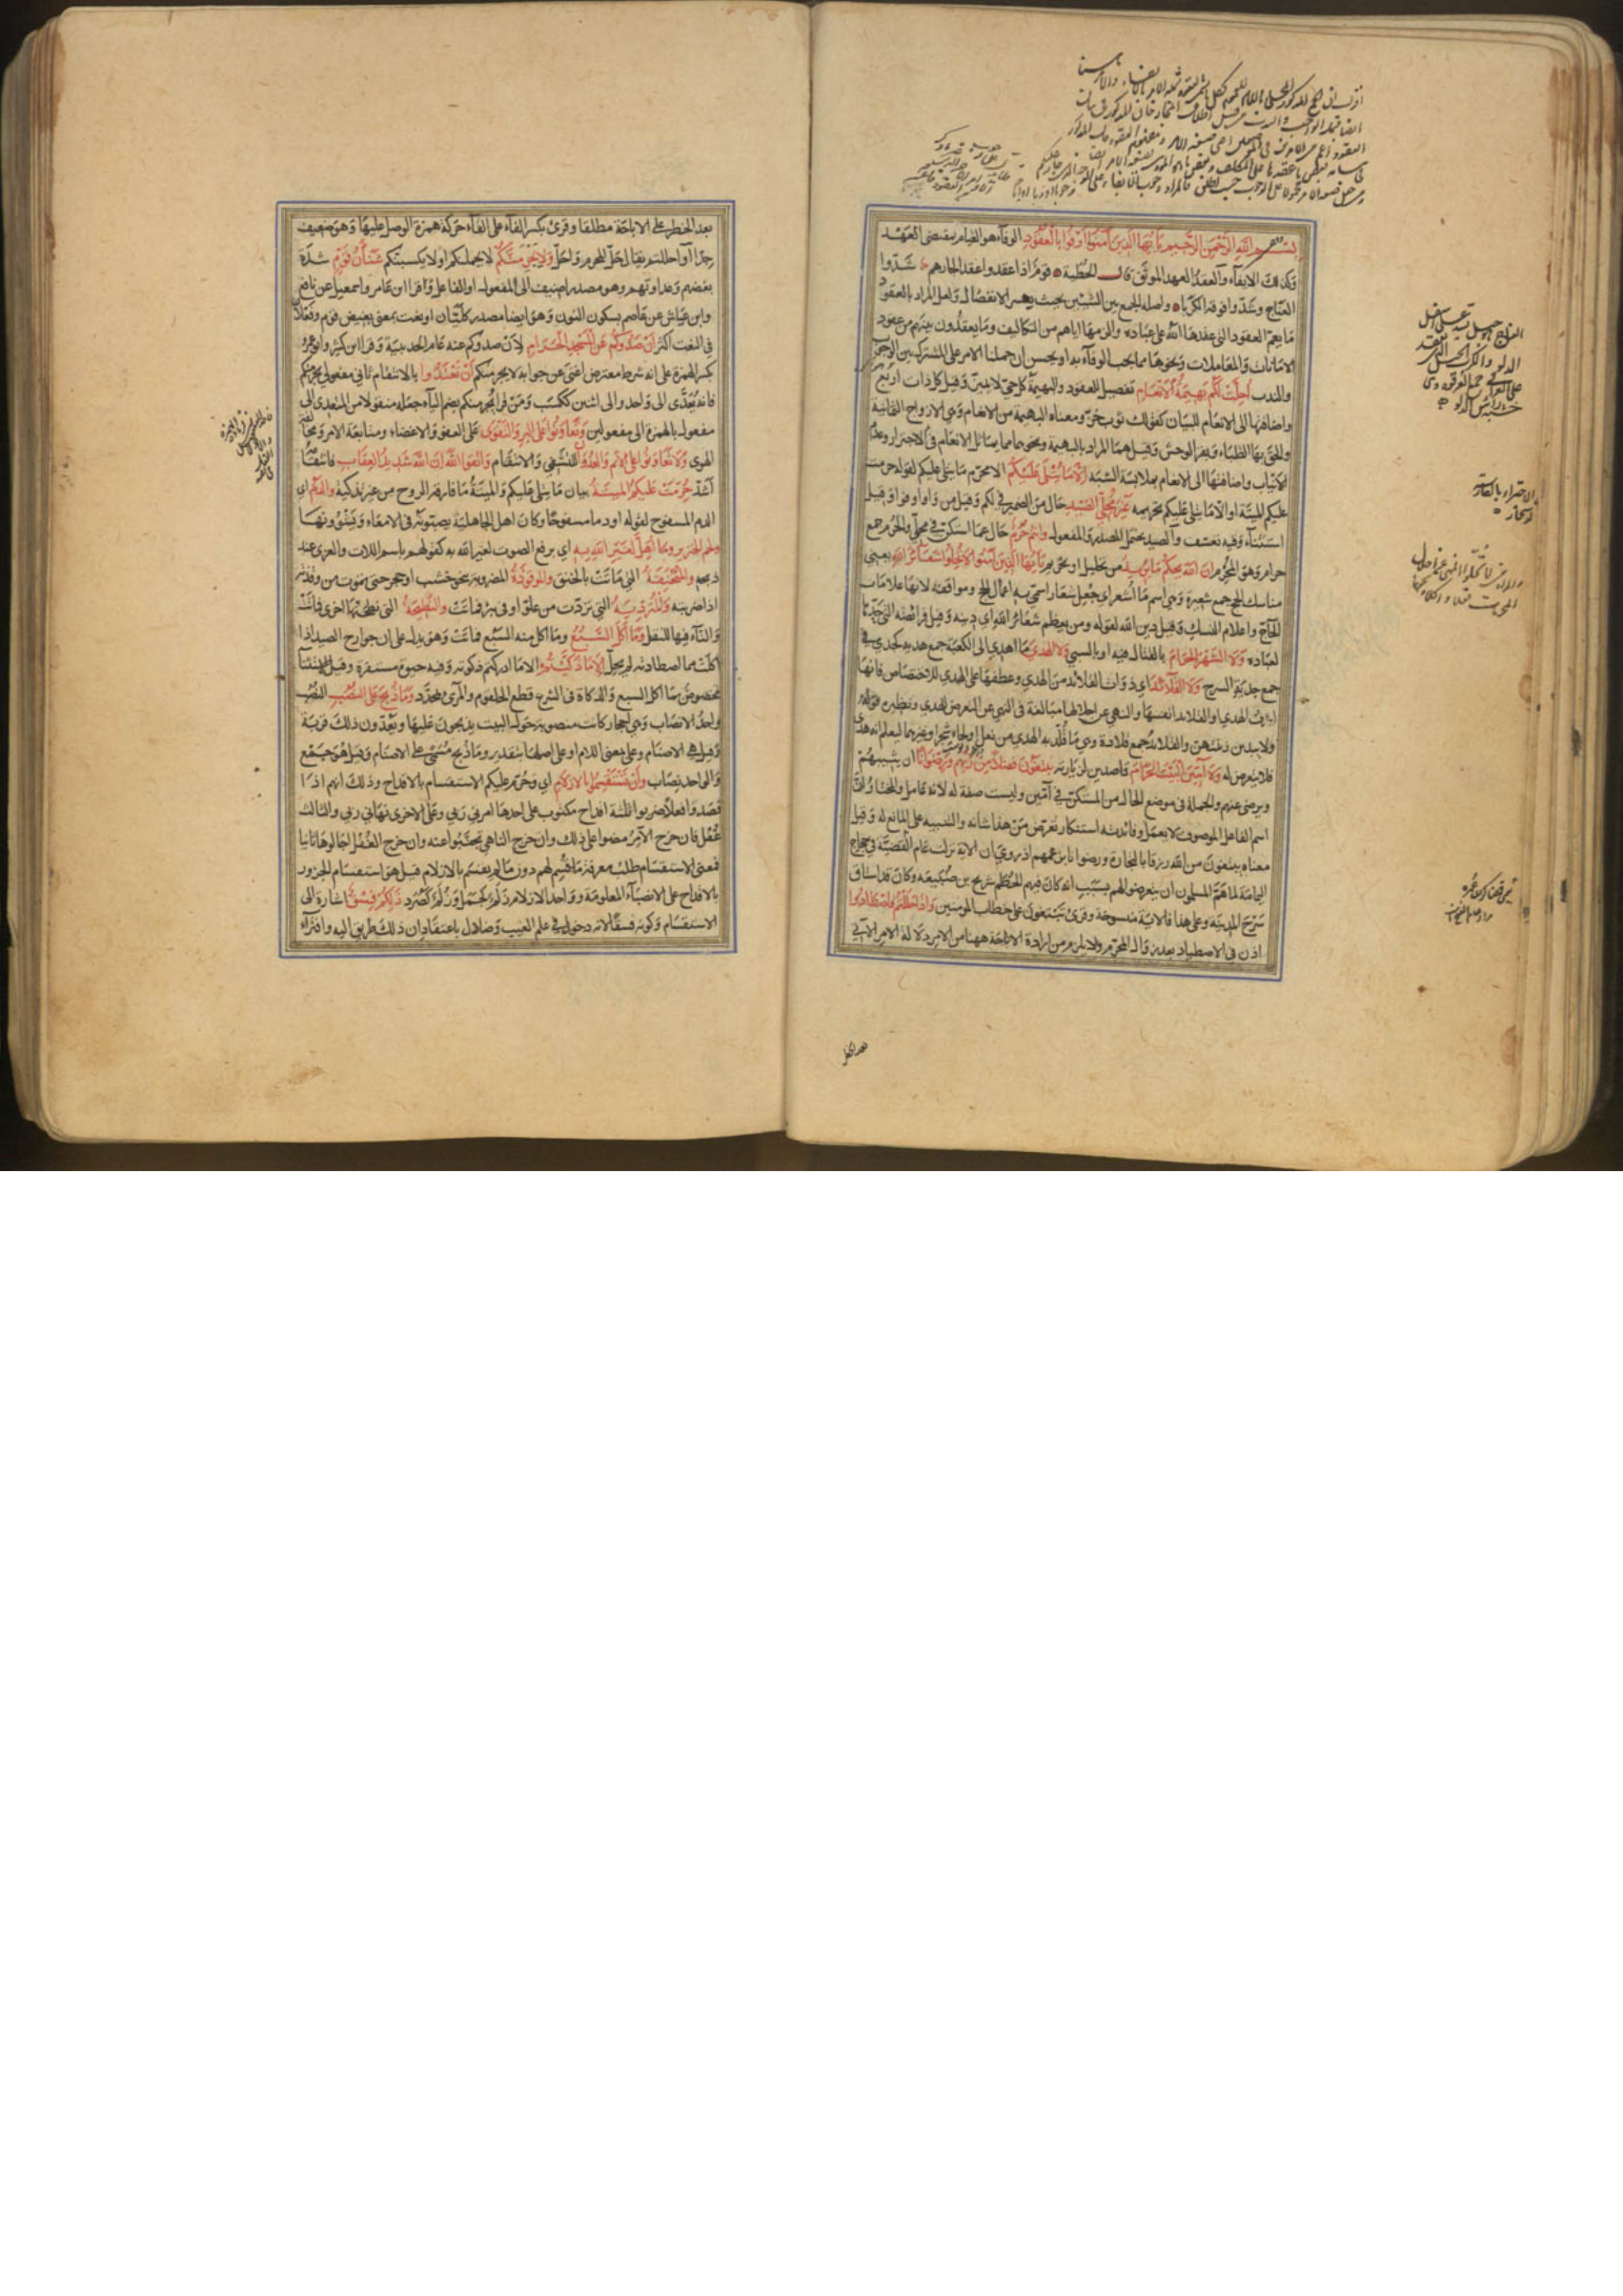 بسم الله الرحمن الرحيم يا ايها الذين آمنوا اوفوا بالعقود الوفاء هو القيام بمقتضى العهد
وكذلك الايفاء والعقد العهد الموثق قال الحطيئة قوم اذا عقدوا عقدا لجارهم شدوا
العناج وشدوا فوقه الكربا واصله الجمع بين الشيئين بحيث يعسر الانفصال ولعل المراد بالعقود
ما يعم العقود التي عقدها الله على عباده والزمها اياهم من التكاليف وما يعقدون بينهم من عقود
الامانات والمعاملات ونحوها مما يجب الوفاء به او يحسن ان حملنا الامر على المشترك بين الوجوب
والندب احلت لكم بهيمة الانعام تفصيل للعقود والبهيمة كل حي لا يميز وقيل كل ذات اربع
واضافتها الى الانعام للبيان كقولك ثوب خز ومعناه البهيمة من الانعام وهي الازواج الثمانية
والحق بها الظباء وبقر الوحش وقيل هما المراد بالبهيمة ونحوهما مما يماثل الانعام في الاجترار وعدم
الانياب واضافتها الى الانعام لملابسة الشبه الا ما يتلى عليكم الا محرم ما يتلى عليكم لقوله حرمت
عليكم الميتة او الا ما يتلى عليكم تحريمه غير محلي الصيد حال من الضمير في لكم وقيل من واو اوفوا وقيل
استثناء وفيه تعسف والصيد يحتمل المصدر والمفعول وانتم حرم حال عما استكن في محلي والحرم جمع
حرام وهو المحرم ان الله يحكم ما يريد من تحليل او تحريم يا ايها الذين آمنوا لا تحلوا شعائر الله يعني
مناسك الحج جمع شعيرة وهي اسم ما اشعر اي جعل شعارا سمي به اعمال الحج ومواقفه لانها علامات
الحاج واعلام النسك وقيل دين الله لقوله ومن يعظم شعائر الله اي دينه وقيل فرائضه التي حدها
لعباده ولا الشهر الحرام بالقتال فيه او بالسبي ولا الهدي ما اهدي الى الكعبة جمع هدية كجدي في
جمع جدية السرج ولا القلائد اي ذوات القلائد من الهدي وعطفها على الهدي للاختصاص فانها
اشرف الهدي او القلائد انفسها والنهي عن احلالها مبالغة في النهي عن التعرض للهدي ونظيره قوله
ولا يبدين زينتهن والقلائد جمع قلادة وهي ما قلد به الهدي من نعل او لحاء شجر او غيرهما ليعلم انه هدي
فلا يتعرض له ولا آمين البيت الحرام قاصدين لزيارته يبتغون فضلا من ربهم ورضوانا ان يثيبهم
ويرضى عنهم والجملة في موضع الحال من المستكن في آمين وليست صفة له لانه عامل والمختار ان
اسم الفاعل الموصوف لا يعمل وفائدته استنكار تعرض من هذا شانه والتنبيه على المانع له وقيل
معناه يبتغون من الله رزقا بالتجارة ورضوانا بزعمهم اذ روي ان الاية نزلت عام القضية في حجاج
اليمامة لما هم المسلمون ان يتعرضوا لهم بسبب انه كان فيهم الحطم شريح بن ضبيعة وكان قد استاق
سرح المدينة وعلى هذا فالاية منسوخة وقرئ تبتغون على خطاب المومنين واذا حللتم فاصطادوا
اذن في الاصطياد بعد زوال المحرم ولا يلزم من ارادة الاباحة ههنا من الامر دلالة الامر الآتي
بعد الحظر
بعد الحظر على الاباحة مطلقا وقرئ بكسر الفاء على القاء حركة همزة الوصل عليها وهو ضعيف
جدا واحللتم يقال حل المحرم واحل ولا يجرمنكم لا يحملنكم او لا يكسبنكم شنآن قوم شدة
بغضهم وعداوتهم وهو مصدر اضيف الى المفعول او الفاعل وقرا ابن عامر واسمعيل عن نافع
وابن عياش عن عاصم بسكون النون وهو ايضا مصدر كليان او نعت بمعنى بغيض قوم وفعلان
في النعت اكثر ان صدوكم عن المسجد الحرام لان صدوكم عنه عام الحديبية وقرا ابن كثير وابو عمرو
بكسر الهمزة على انه شرط معترض اغنى عن جوابه لا يجرمنكم ان تعتدوا بالانتقام ثاني مفعولي يجرمنكم
فانه يعدى الى واحد والى اثنين ككسب ومن قرا يجرمنكم بضم الياء جعله منقولا من المتعدي الى
مفعول بالهمزة الى مفعولين وتعاونوا على البر والتقوى على العفو والاغضاء ومتابعة الامر ومجانبة
الهوى ولا تعاونوا على الاثم والعدوان للتشفي والانتقام واتقوا الله ان الله شديد العقاب فانتقامه
اشد حرمت عليكم الميتة بيان ما يتلى عليكم والميتة ما فارقه الروح من غير تذكية والدم اي
الدم المسفوح لقوله او دما مسفوحا وكان اهل الجاهلية يصبونه في الامعاء ويشوونها
ولحم الخنزير وما اهل لغير الله به اي برفع الصوت لغير الله به كقولهم باسم اللات والعزى عند
ذبحه والمنخنقة التي ماتت بالخنق والموقوذة المضروبة بنحو خشب او حجر حتى تموت من وقذته
اذا ضربته والمتردية التي تردت من علو او في بئر فماتت والنطيحة التي نطحتها اخرى فماتت
والتاء فيها للنقل وما اكل السبع وما اكل منه السبع فمات وهو يدل على ان جوارح الصيد اذا
اكلت مما اصطادته لم يحل الا ما ذكيتم الا ما ادركتم ذكوته وفيه حيوة مستقرة وقيل الاستثناء
مخصوص بما اكل السبع والذكاة في الشرع قطع الحلقوم والمرئ بمحدد وما ذبح على النصب النصب
واحد الانصاب وهي احجار كانت منصوبة حول البيت يذبحون عليها ويعدون ذلك قربة
وقيل هي الاصنام وعلى بمعنى اللام او على اصلها بتقدير وما ذبح مسمى على الاصنام وقيل هو جمع
والواحد نصاب وان تستقسموا بالازلام اي وحرم عليكم الاستقسام بالاقداح وذلك انهم اذا
قصدوا فعلا ضربوا ثلثة اقداح مكتوب على احدها امرني ربي وعلى الاخرى نهاني ربي والثالث
غفل فان خرج الآمر مضوا على ذلك وان خرج الناهي تجنبوا عنه وان خرج الغفل اجالوها ثانيا
فمعنى الاستقسام طلب معرفة ما قسم لهم دون ما لم يقسم بالازلام وقيل هو استقسام الجزور
بالاقداح على الانصباء المعلومة وواحد الازلام زلم كجمل وزلم كصرد ذلكم فسق اشارة الى
الاستقسام وكونه فسقا لانه دخول في علم الغيب وضلال باعتقاد ان ذلك طريق اليه وافتراء